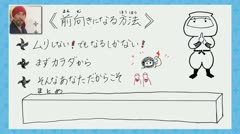 《前向きになる方法》
まえむ ほうほう
ムリしない!でもなるしかない!
まずカラダから
そんなあなただからこそ
まとめ